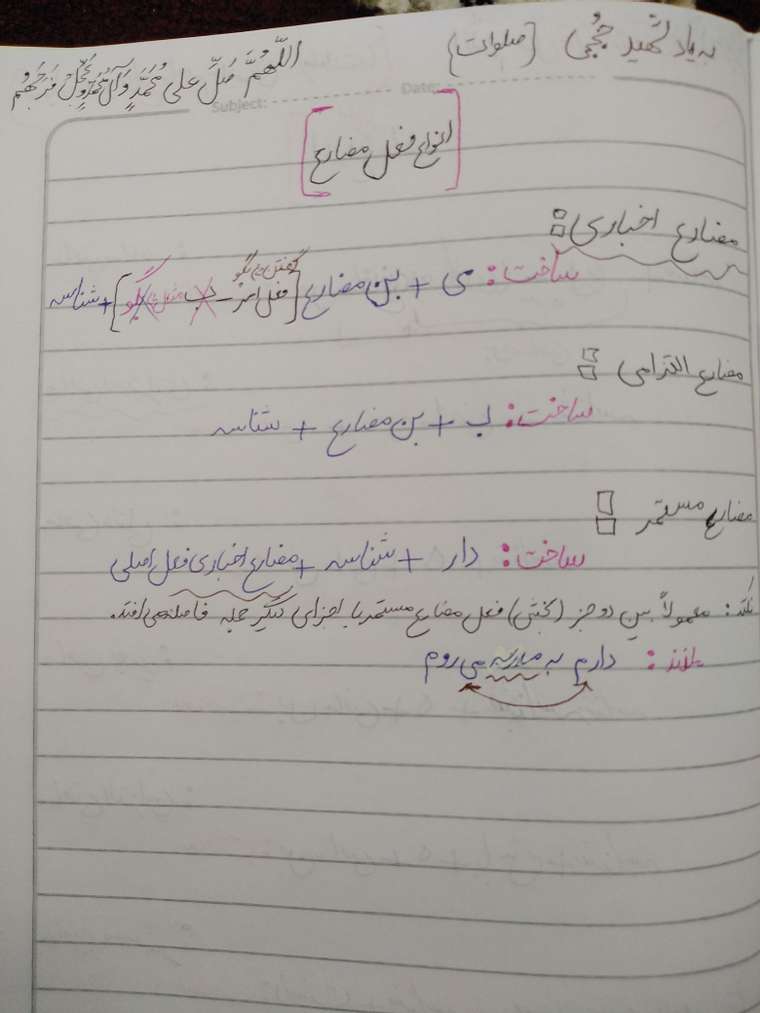 به یاد شهید حججی (صلوات)
اللّهُمَّ صَلِّ علی مُحَمَّدٍ وَآلِ مُحَمَّدٍ وَعَجِّل فَرَجَهُم
Subject: Date:
[انواع فعل مضارع]
مضارع اخباری:
گفتن بگو
ساخت: می + بن مضارع [فعل امر - ب مثل: بگو] + شناسه
مضارع التزامی:
ساخت: ب + بن مضارع + شناسه
مضارع مستمر:
ساخت: دار + شناسه + مضارع اخباری فعل اصلی
نکته: معمولاً بین دو جز (بخش) فعل مضارع مستمر با اجزای دیگر جمله فاصله می‌افتد.
مانند: دارم به مدرسه می روم